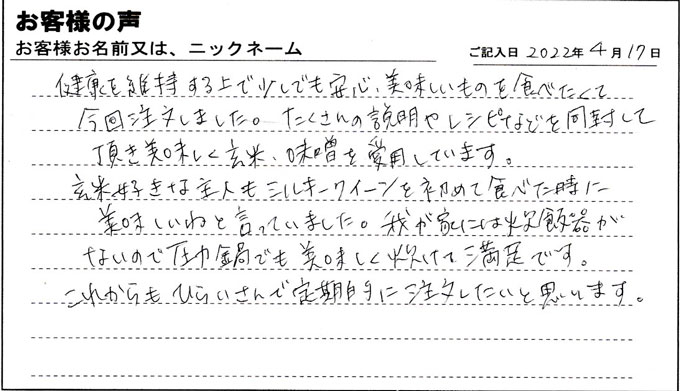 お客様の声
お客様お名前又は、ニックネーム
ご記入日 2022年4月17日
健康を維持する上で少しでも安心、美味しいものを食べたくて
今回注文しました。たくさんの説明やレシピなどを同封して
頂き美味しく玄米、味噌を愛用しています。
玄米好きな主人もミルキークイーンを初めて食べた時に
美味しいねと言っていました。我が家には炊飯器が
ないので圧力鍋でも美味しく炊けて満足です。
これからもひらいさんで定期的に注文したいと思います。